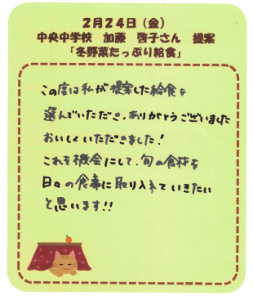 2月24日（金）
中央中学校　加藤　啓子さん　提案
「冬野菜たっぷり給食」
この度は私が提案した給食を
選んでいただき、ありがとうございました
おいしくいただきました!
これを機会にして、旬の食材を
日々の食事に取り入れていきたい
と思います!!